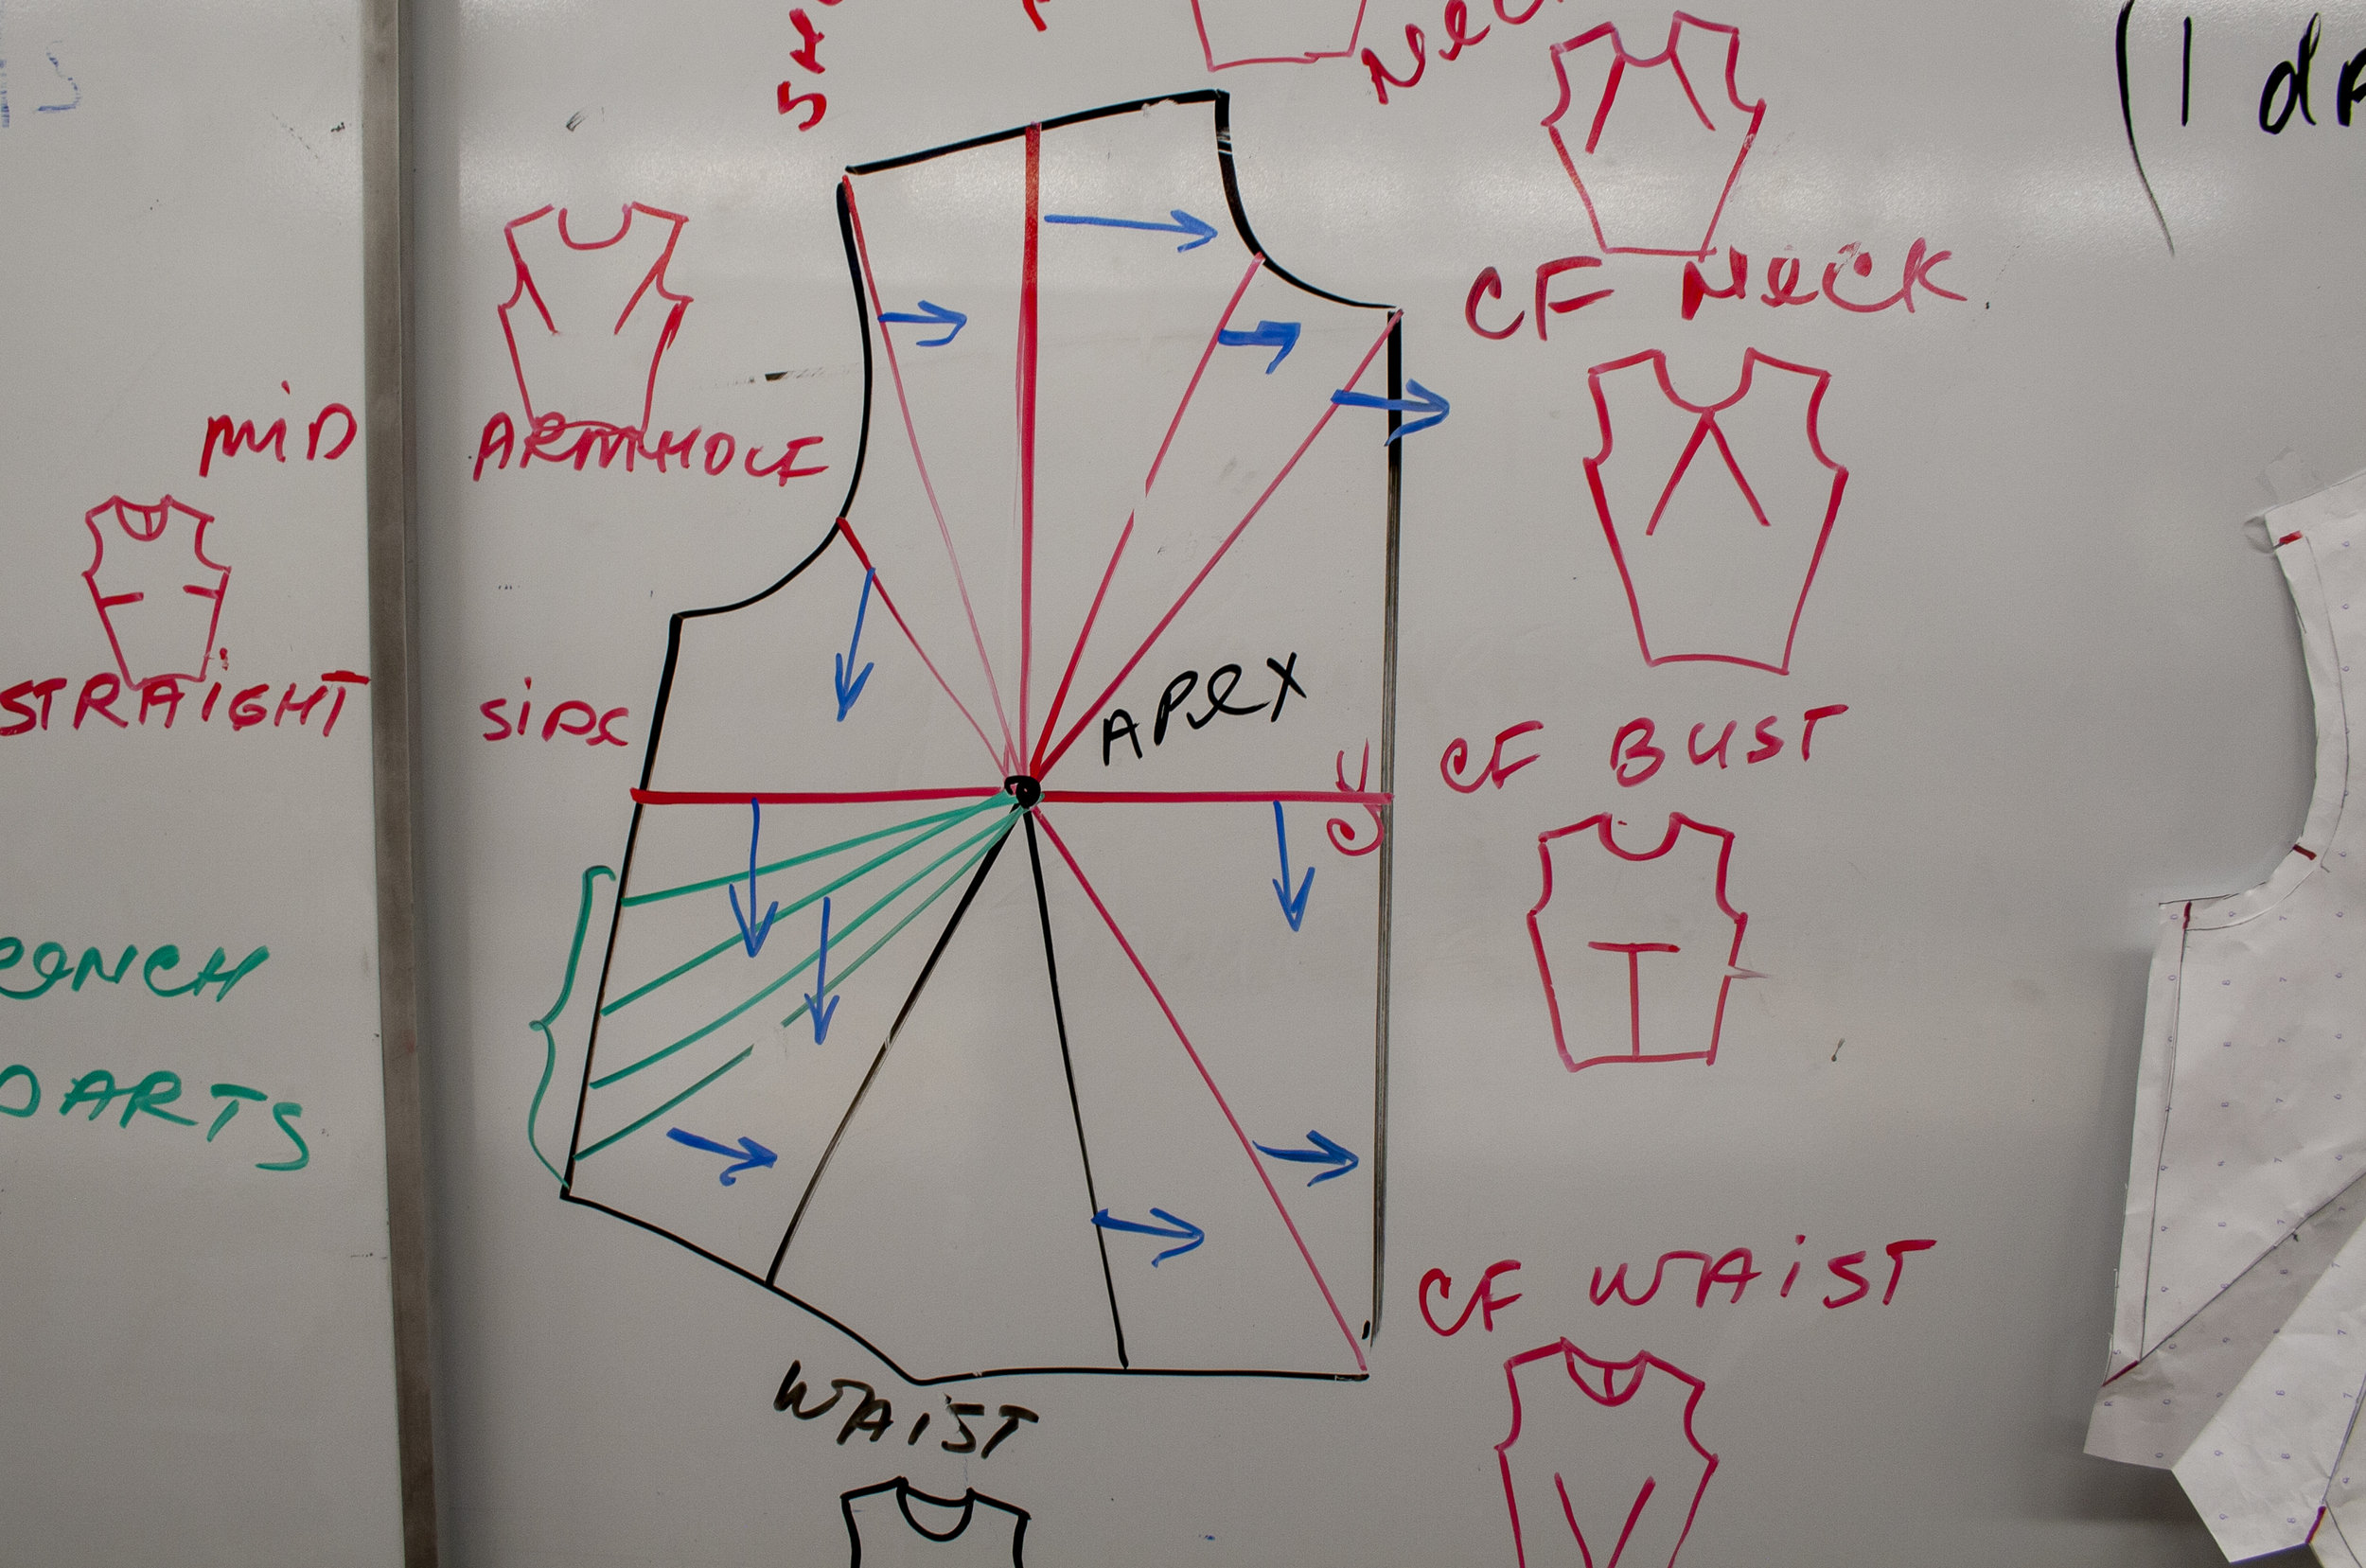 NeC
(1 dA
CF NecK
MiD
ARMHOLE
STRAiGHT
SiDe
APeX
CF BUST
RENCH
DARTS
CF WAiST
WAiST